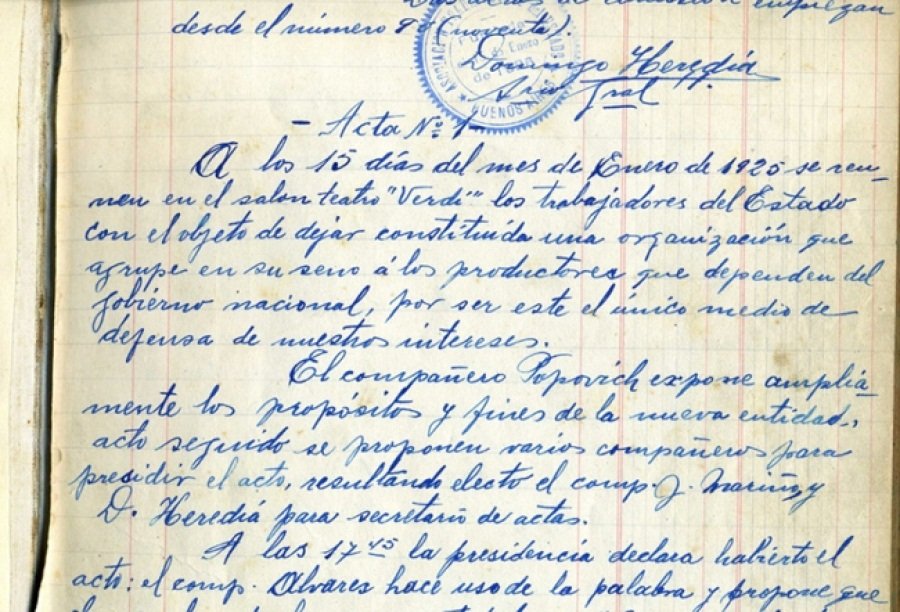 desde el número 9 (noventa).
Domingo Heredia
gral
BUENOS AIRES
— Acta Nº 1 —
A los 15 días del mes de Enero de 1925 se reu-
nen en el salon teatro "Verdi" los trabajadores del Estado
con el objeto de dejar constituída una organización que
agrupe en su seno á los productores que dependen del
gobierno nacional, por ser este el único medio de
defensa de nuestros intereses.
El compañero Popovich expone amplia-
mente los propósitos y fines de la nueva entidad,
acto seguido se proponen varios compañeros para
presidir el acto, resultando electo el comp. J. Mariño, y
D. Heredia para secretario de actas.
A las 17 45 la presidencia declara habierto el
acto: el comp. Alvares hace uso de la palabra y propone que